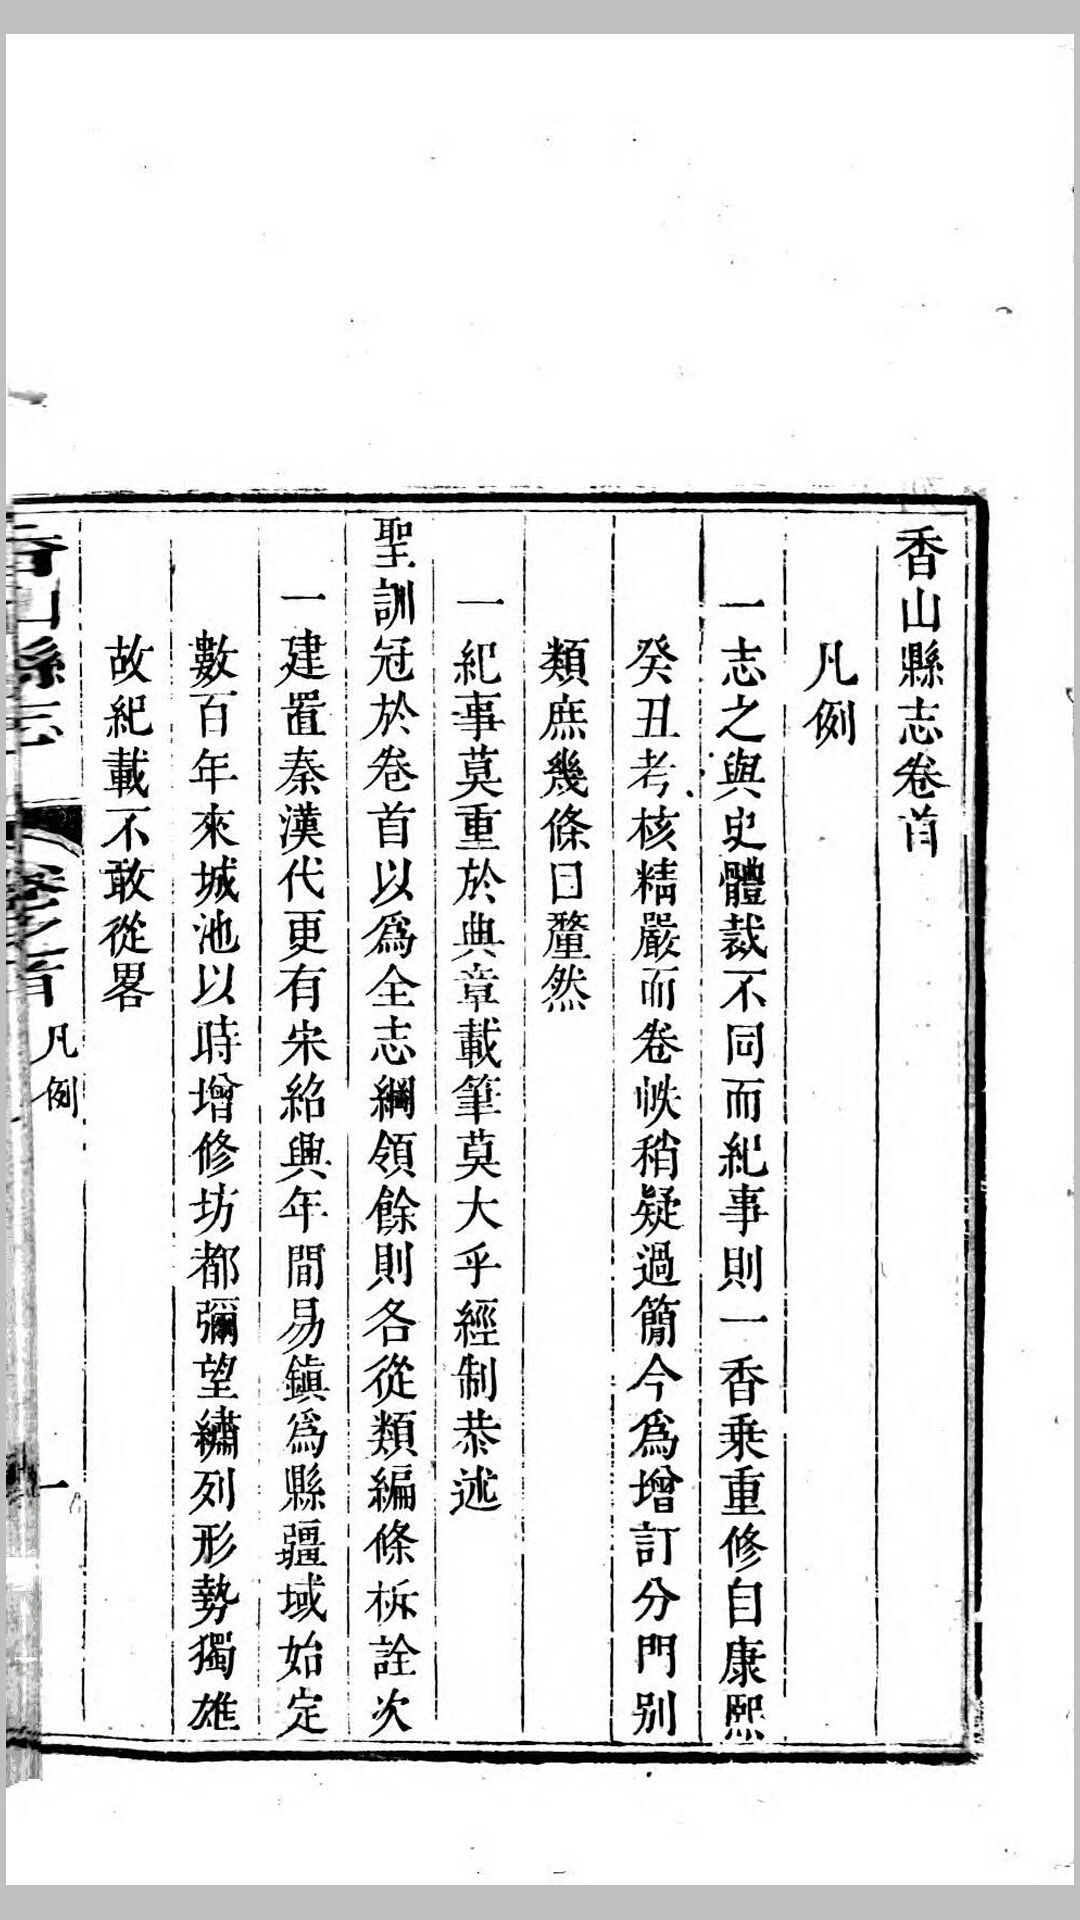 香山縣志卷首
凡例
一志之與史體裁不同而紀事則一香乗重修自康熙
癸丑考核精嚴而卷帙稍疑過簡今為增訂分門別
類庶幾條目釐然
一紀事莫重於典章載筆莫大乎經制恭述
聖訓冠於卷首以為全志綱領餘則各從類編條柝詮次
一建置秦漢代更有宋紹興年間易鎮為縣疆域始定
數百年來城池以時增修坊都彌望繡列形勢獨雄
故紀載不敢從畧
香山縣志 卷之首 凡例 一